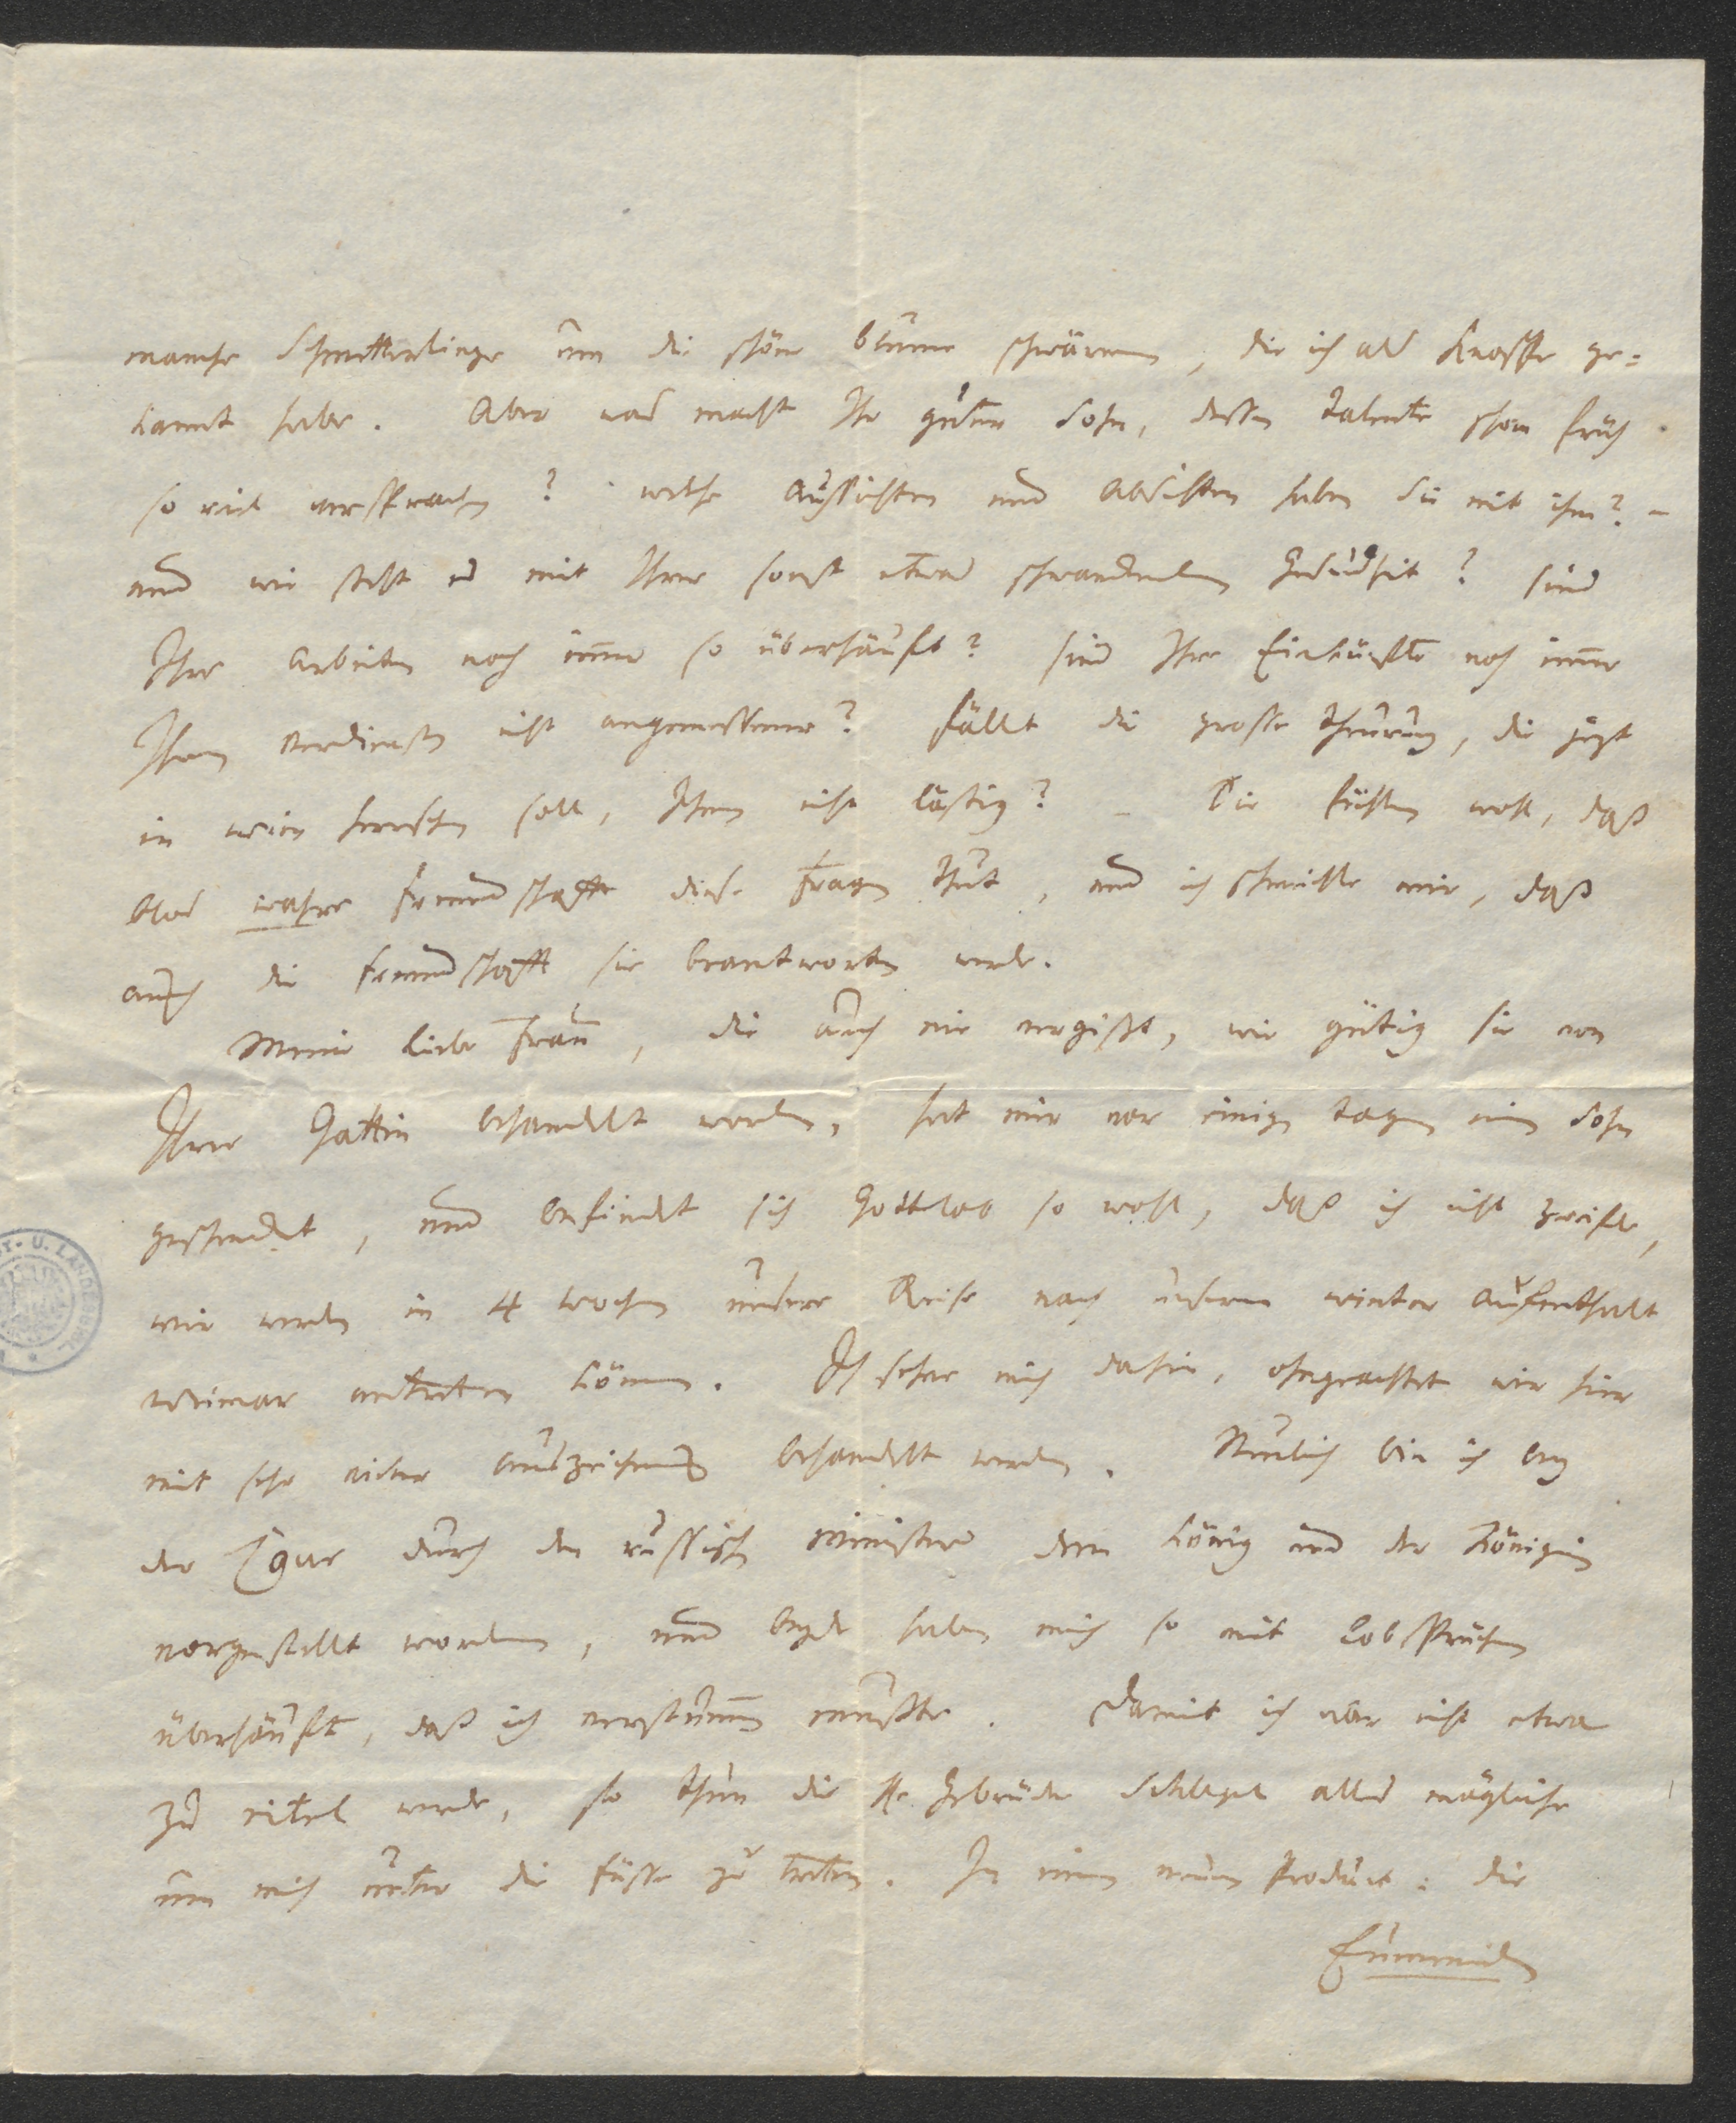 manche Schmetterlinge um die schöne Blume schwärmen, die ich als Knospe ge=
kannt habe. Aber was macht Ihr guter Sohn, dessen Talente schon früh
so viel versprachen? welche Aussichten und Absichten haben Sie mit ihm? –
und wie steht es mit Ihrer sonst etwas schwankenden Gesundheit? sind
Ihre Arbeiten noch immer so überhäuft? sind Ihre Einkünfte noch immer
Ihren Verdiensten nicht angemessener? fällt die grosse Theurung, die jezt
in Wien herrschen soll, Ihnen nicht lästig? – Sie fühlen wohl, daß
blos wahre Freundschafft diese Fragen thut, und ich schmeichle mir, daß
auch die Freundschafft sie beantworten werde.
Meine liebe Frau, die auch nie vergißt, wie gütig sie von
Ihrer Gattin behandelt worden, hat mir vor einigen Tagen einen Sohn
geschenket, und befindet sich Gottlob so wohl, daß ich nicht zweifle,
wir werden in 4 Wochen unsere Reise nach unserm Winter Aufenthalt
Weimar antreten können. Ich sehne mich dahin, ohngeachtet wir hier
mit sehr vieler Auszeichnung behandelt werden. Neulich bin ich bey
der Cour durch den russischen Minister dem König und der Königin
vorgestellt worden, und beyde haben mich so mit Lobsprüchen
überhäuft, daß ich verstummen mußte. Damit ich aber nicht etwa
zu eitel werde, so thun die HE. Gebrüder Schlegel alles mögliche
um mich unter die Füsse zu treten. In einem neuen Product: die
Eumeniden